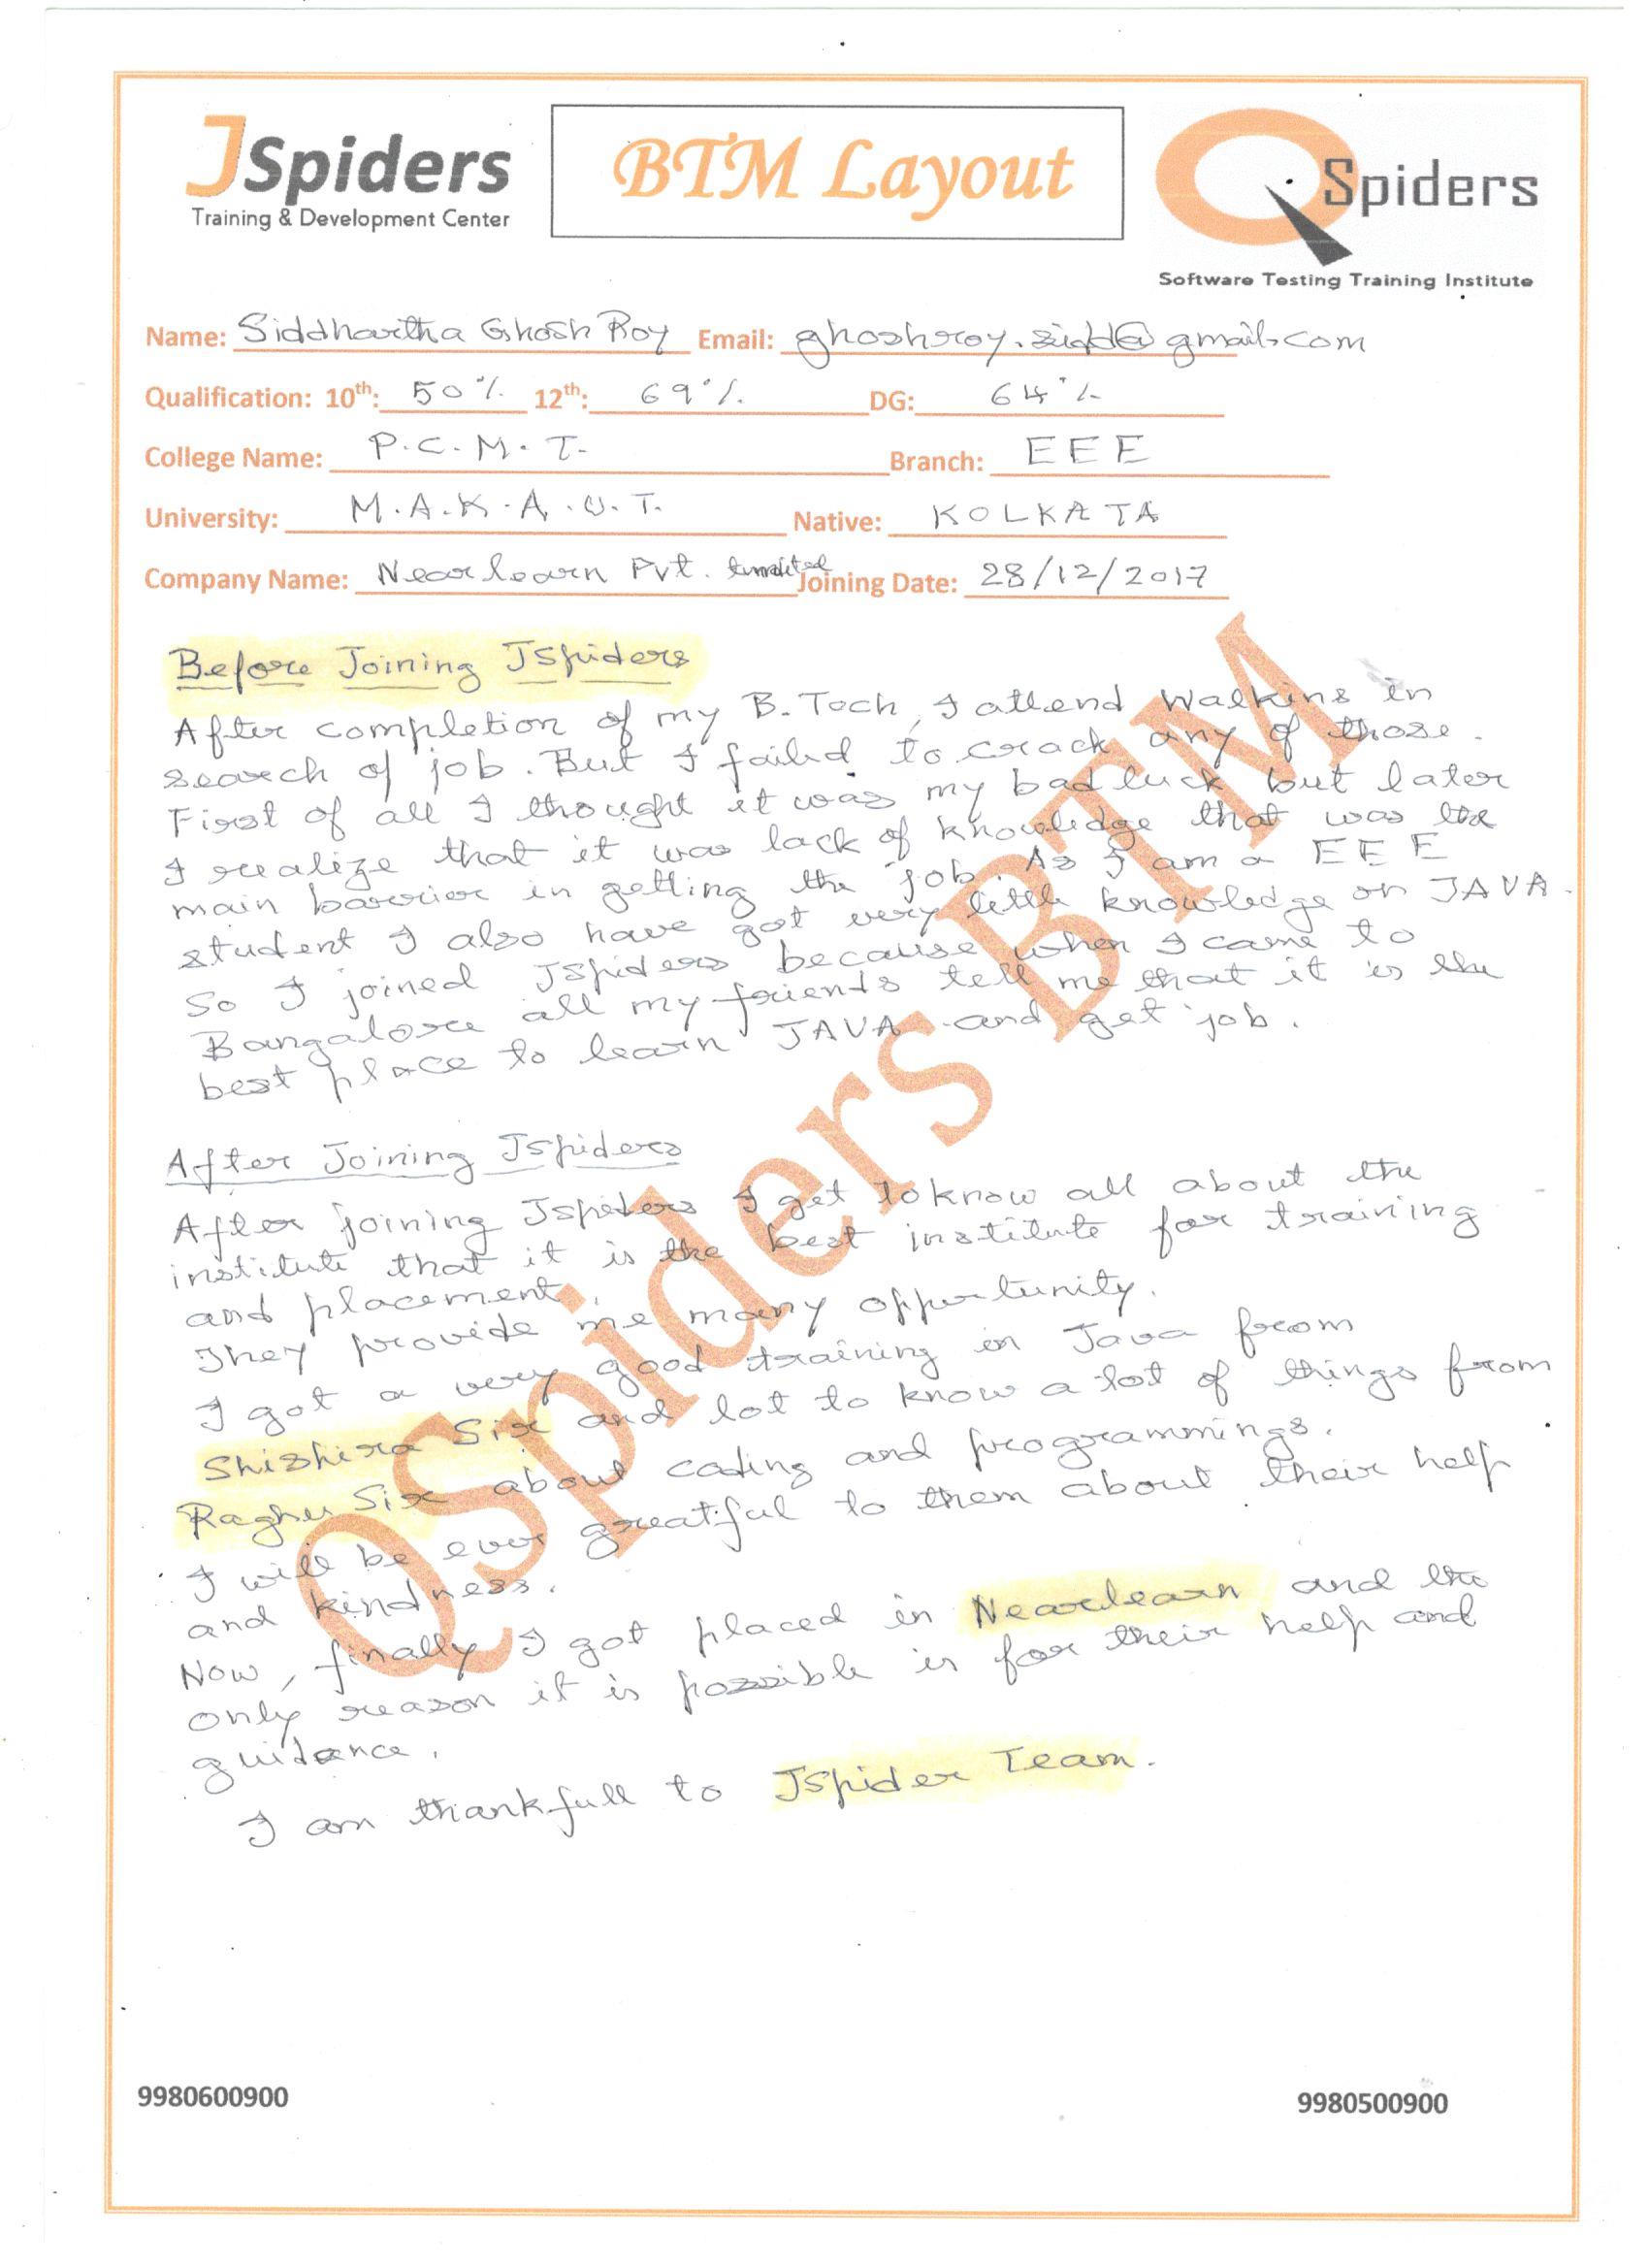 JSpiders
Training & Development Center
BTM Layout
QSpiders
Software Testing Training Institute
Name: Siddhartha Ghosh Roy Email: ghoshroy.sidd@gmail.com
Qualification: 10th: 50% 12th: 69% DG: 64%
College Name: P.C.M.T. Branch: EEE
University: M.A.K.A.U.T. Native: KOLKATA
Company Name: Nearlearn Pvt. Limited Joining Date: 28/12/2017
Before Joining JSpiders
After completion of my B.Tech, I attend walkins in
search of job. But I failed to crack any of those.
First of all I thought it was my bad luck but later
I realize that it was lack of knowledge that was the
main barrier in getting the job. As I am a EEE
student I also have got very little knowledge on JAVA.
So I joined JSpiders because when I came to
Bangalore all my friends tell me that it is the
best place to learn JAVA and get job.
After Joining JSpiders
After joining Jspiders I get to know all about the
institute that it is the best institute for training
and placement.
They provide me many opportunity.
I got a very good training in Java from
Shishira Sir and lot to know a lot of things from
Raghu Sir about coding and programmings.
I will be ever greatful to them about their help
and kindness.
Now, finally I got placed in Nearlearn and the
only reason it is possible is for their help and
guidance.
I am thankfull to JSpider Team.
QSpiders BTM
9980600900 9980500900